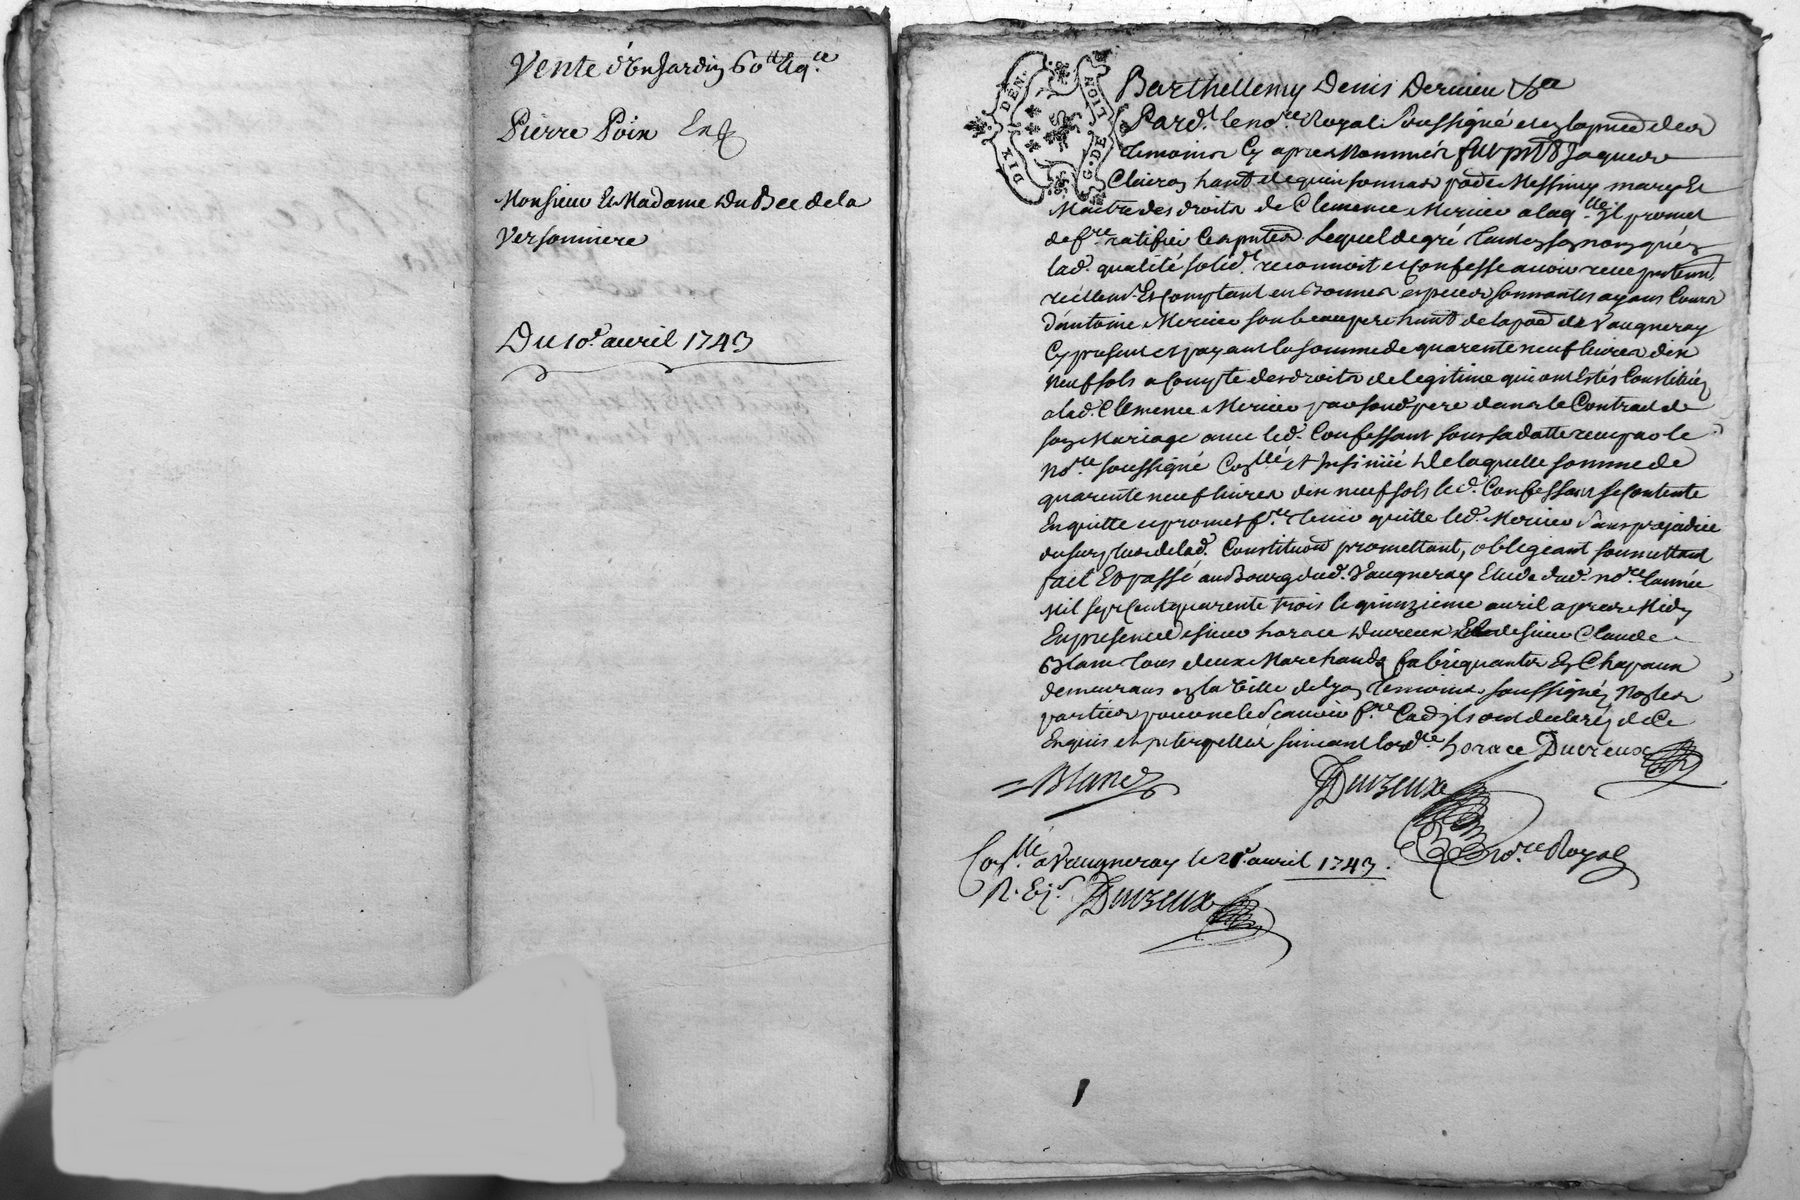 Vente d'un Jardin 60 lt
Pierre Poin
Monsieur Et Madame Du Bec de la
Versonniere
Du 10e. avril 1743
DIX DEN.
G. DE LION
Barthellemy Denis Dervieu
Pard.t le no.re Royal Soussigné et en la pnce des
temoins Cy apres Nommés fut pnt Jaques
Clairon habt de quinsonnas psse de Messimy mary Et
Maitre des droits de Clemence Mercier a laq.lle il promet
de f.re ratifier Ces pntes. Lequel de gré tant en son nom qu'en
lad. qualité solid.t reconnoit et Confesse avoir receu pntem.t
reellem.t Et Comptant en bonnes especes sonnantes ayans Cours
d'antoine Mercier son beau pere habt de la psse de Vaugneray
Cy present et payant la somme de quarente neuf livres dix
neuf sols a Compte des droits de legitime qui ont Estés Constitués
a lad. Clemence Mercier par sond. pere dans le Contract de
son Mariage avec led. Confessant sous sa datte receu par le
No.re soussigné Con.llé et Insinüé De laquelle somme de
quarente neuf livres dix neuf sols led. Confessant se Contente
En quitte et promet f.re tenir quitte led. Mercier Sans prejudice
du surplus de lad. Constitution promettant, obligeant soumettant
fait Et passé au Bourg dud. Vaugneray Etude dud. no.re l'année
Mil sept Cent quarente trois le quinzieme avril apres Midy
En presence de sieur horace Duvreux Et de sieur Claude
Blanc tous deux Marchands fabriquants En Chapaux
demeurans en la Ville de Lyon temoins soussignés Non les
parties pour ne le sçavoir f.re Cad. ils ont declaré de Ce
Enquis et Interpellés suivant l'ord.ce horace Duvreux
Blanc
Duvreux
No.re Royal
Con.llé a Vaugneray le 21e avril 1743.
R. Duvreux